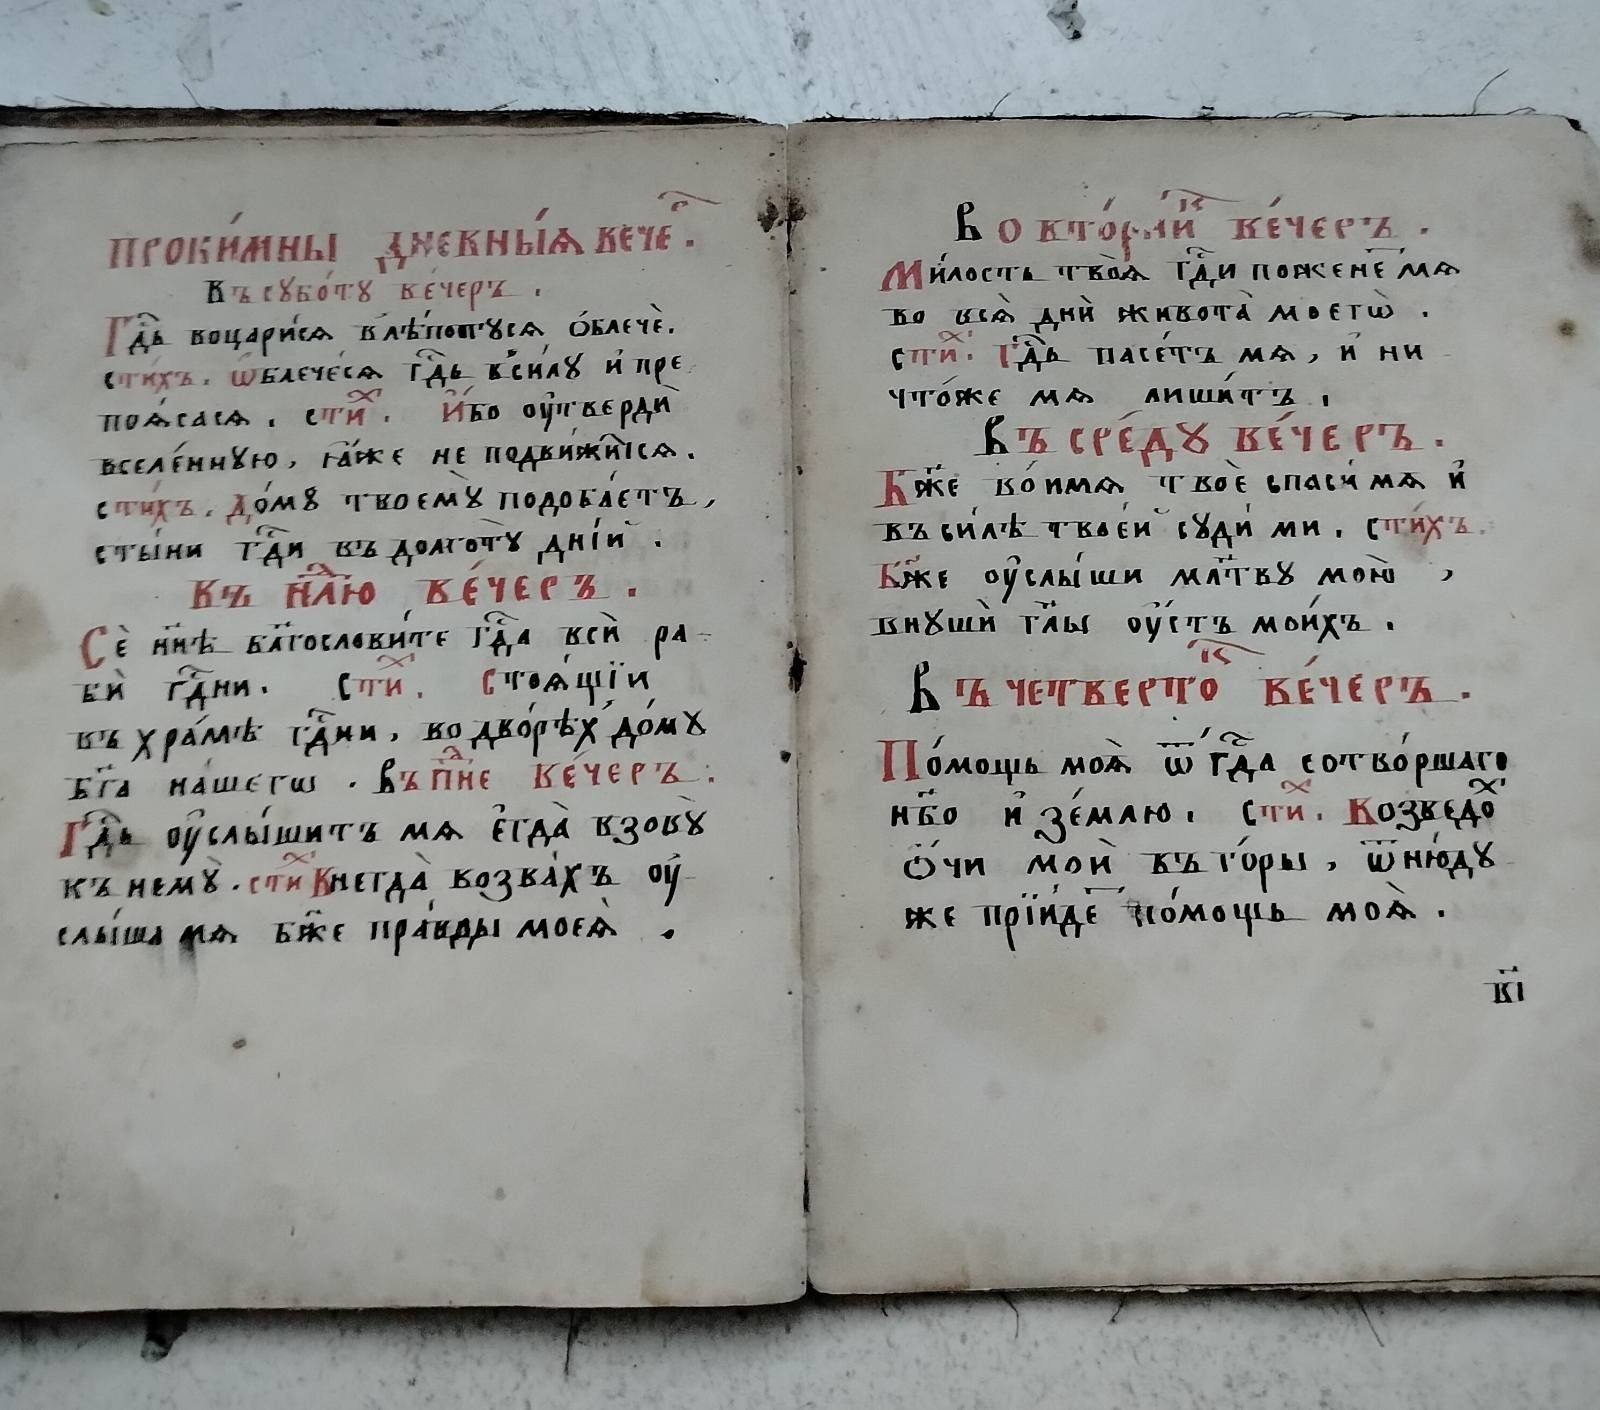 ПРОКИ́МНЫ ДНЕВНЫ́Ѧ ВЕЧЕ҇ .
Въ сꙋбо́тꙋ ве́черъ .
Гд҇ь воцари́сѧ влѣ́потꙋсѧ ѻ҆блечѐ .
сти́хъ . ѡ҆блече́сѧ гд҇ь в си́лꙋ и҆ пре
поѧ́сасѧ . стиⷯ . И҆́бо ᲂу҆твердѝ
вселе́ннꙋю , ꙗ҆́же не подви́житсѧ .
сти́хъ . до́мꙋ твоемꙋ̀ подоба́етъ ,
ст҃ы́ни гд҇и въ долготꙋ̀ дні́й .
въ нⷣлю ве́черъ .
Сѐ нн҃ѣ блг҃ослови́те гд҇а всѝ ра
бѝ гд҇ни . Стиⷯ . Стоѧ́щїи
въ хра́мѣ гд҇ни , во дво́рѣхъ до́мꙋ
бг҃а на́шегѡ . Въ пⷧ҇не ве́черъ .
Гд҇ь ᲂу҆слы́шитъ мѧ є҆гда̀ взовꙋ̀
къ немꙋ̀ . стиⷯ Внегда̀ возва́хъ ᲂу҆
слы́ша мѧ бж҃е пра́вды моеѧ̀ .
Во вто́рыйⷦ ве́черъ .
Ми́лость твоѧ̀ гд҇и пожене́ мѧ
во всѧ̀ днѝ живота̀ моегѡ̀ .
стиⷯ . Гд҇ь пасе́тъ мѧ , и҆ ни
что́же мѧ лиши́тъ .
Въ сре́дꙋ ве́черъ .
Бж҃е во́ имѧ твоѐ спаси́ мѧ и҆
въ си́лѣ твое́й сꙋди́ ми . сти́хъ .
Бж҃е ᲂу҆слы́ши мл҃твꙋ мою̀ ,
внꙋшѝ гл҃ы ᲂу҆́стъ мои́хъ .
Въ четвертоⷦ ве́черъ .
По́мощь моѧ̀ ѿ гд҇а сотво́ршаго
нб҃о и҆ зе́млю . Стиⷯ . Возведоⷯ
Ѻ҆́чи моѝ въ го́ры , ѿню́дꙋ
же прїи́де по́мощь моѧ̀ .
в҃і